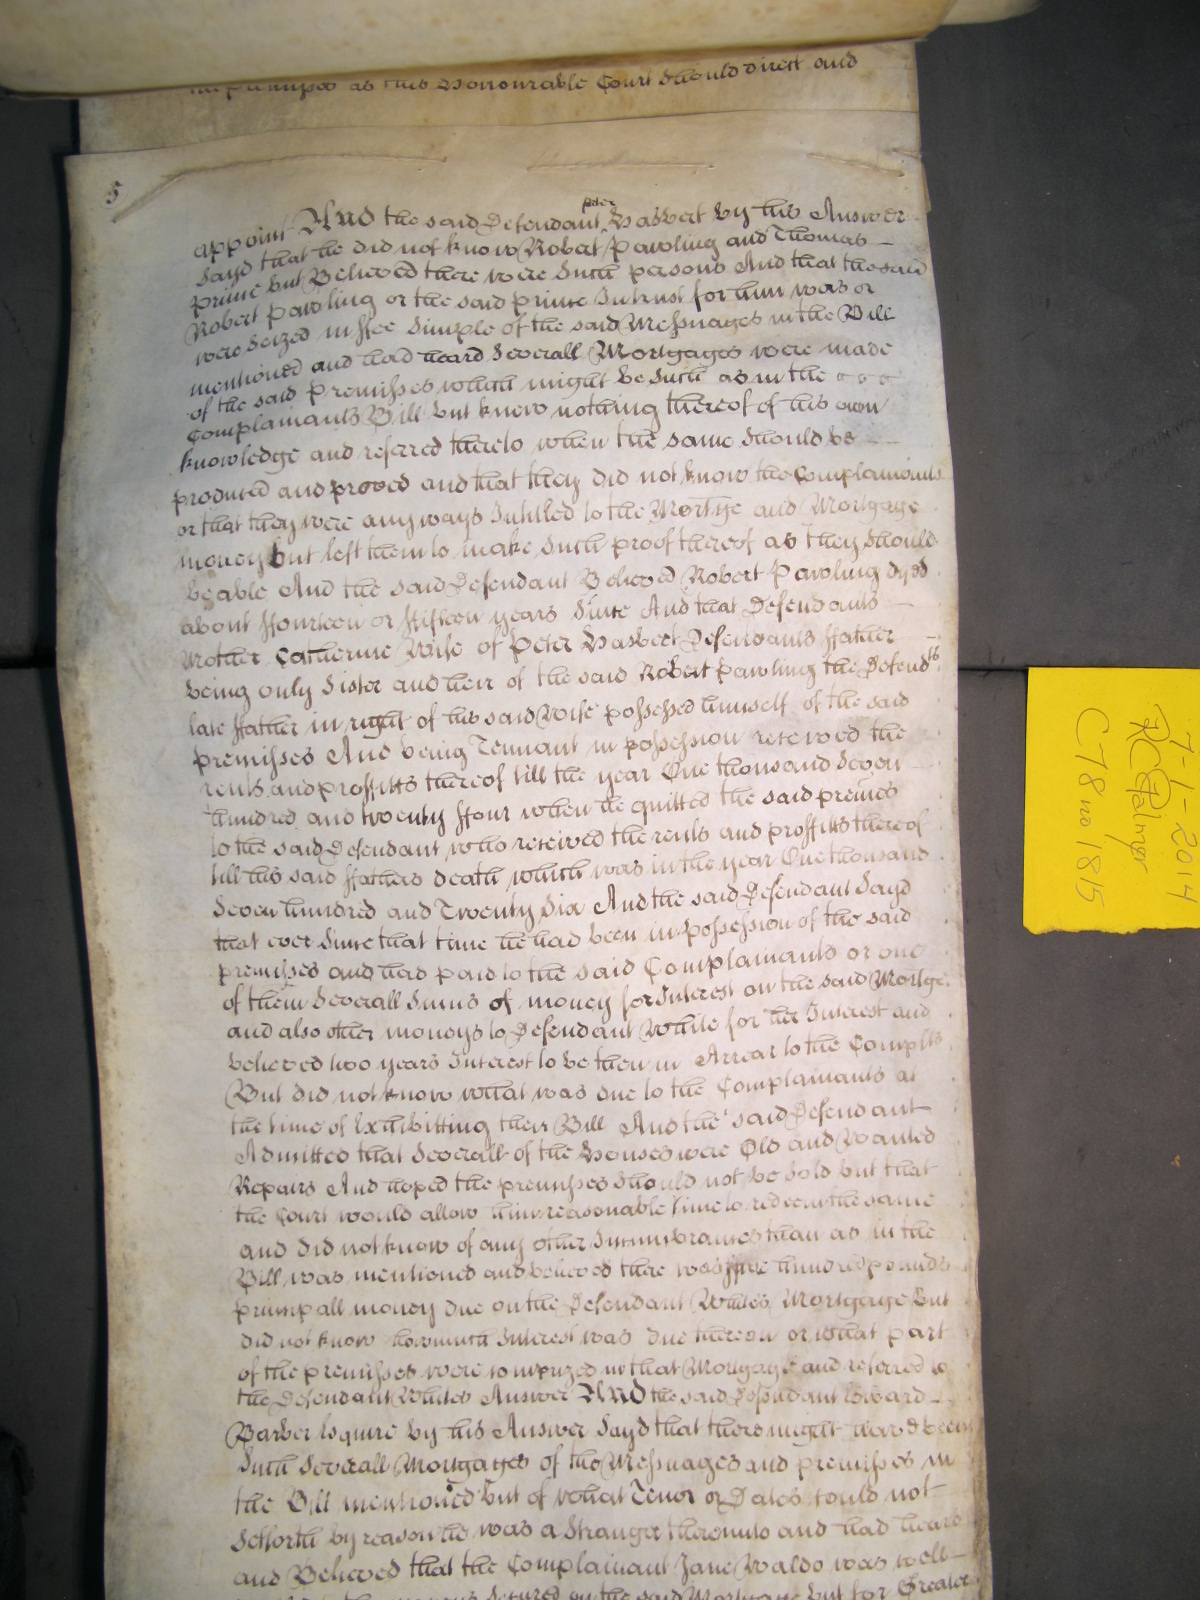 premisses as this Honourable Court should direct and
5
appoint And the said Defendant Peter Hasbert by his Answer
Sayd that he did not know Robert Pawling and Thomas
Prime but Believed there were Such persons And that the said
Robert Pawling or the said Prime In trust for him was or
were Seized in ffee Simple of the said Messuages in the Bill
mentioned and had heard Severall Mortgages were made
of the said Premisses which might be Such as in the
Complainants Bill but knew nothing thereof of his own
knowledge and referred thereto when the same Should be
produced and proved and that they did not know the Complainants
or that they were any ways Intitled to the Mortge and Mortgage
money but left them to make Such proof thereof as they Should
be able And the said Defendant Believed Robert Pawling dyed
about ffourteen or ffifteen years Since And that Defendants
Mother Catherine Wife of Peter Hasbert Defendants ffather
being only Sister and heir of the said Robert Pawling the Defendts
late ffather in right of his said Wife possessed himself of the said
premisses And being Tennant in possession received the
rents and proffitts thereof till the year One thousand Seven
hundred and twenty ffour when he quitted the said premes
to the said Defendant who received the rents and proffitts thereof
till his said ffathers death which was in the year One thousand
Seven hundred and Twenty Six And the said Defendant Sayd
that ever Since that time he had been in possession of the said
premisses and had paid to the said Complainants or one
of them Severall Sums of money for Interest on the said Mortge
and also other moneys to Defendant White for her Interest and
believed two years Interest to be then in Arrear to the Complts
But did not know what was due to the Complainants at
the time of Exhibitting their Bill And the said Defendant
Admitted that Severall of the Houses were Old and Wanted
Repairs And hoped the premisses Should not be Sold but that
the Court would allow him reasonable time to redeem the same
and did not know of any other Incumbrances than as in the
Bill was mentioned and believed there was ffive hundred pounds
principall money due on the Defendant Whites Mortgage But
did not know how much Interest was due thereon or what part
of the premisses were comprized in that Mortgage and referred to
the Defendant Whites Answer And the said Defendant Edward
Barker Esquire by his Answer Sayd that there might have been
Such Severall Mortgages of the Messuages and premisses in
the Bill mentioned but of what Tenor or Dates could not
Setforth by reason he was a Stranger thereunto and had heard
and Believed that the Complainant Jane Waldo was well
moneys Secured on the said Mortgage but for Greater
7-1-2014
RC Palmer
C78 no 1815